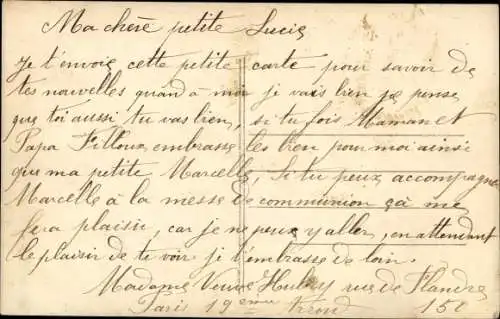 Ma chere petite Lucie
Je t'envoie cette petite carte pour savoir de
tes nouvelles quand a moi je vais bien je pense
que toi aussi tu vas bien, si tu fois Maman et
Papa Filloux embrasse les bien pour moi ainsi
que ma petite Marcelle, Si tu peux accompagne
Marcelle à la messe de communion çà me
fera plaisir, car je ne peux y aller, en attendant
le plaisir de te voir je t'embrasse de loin.
Madame Veuve rue de Flandre
Paris 19eme 150